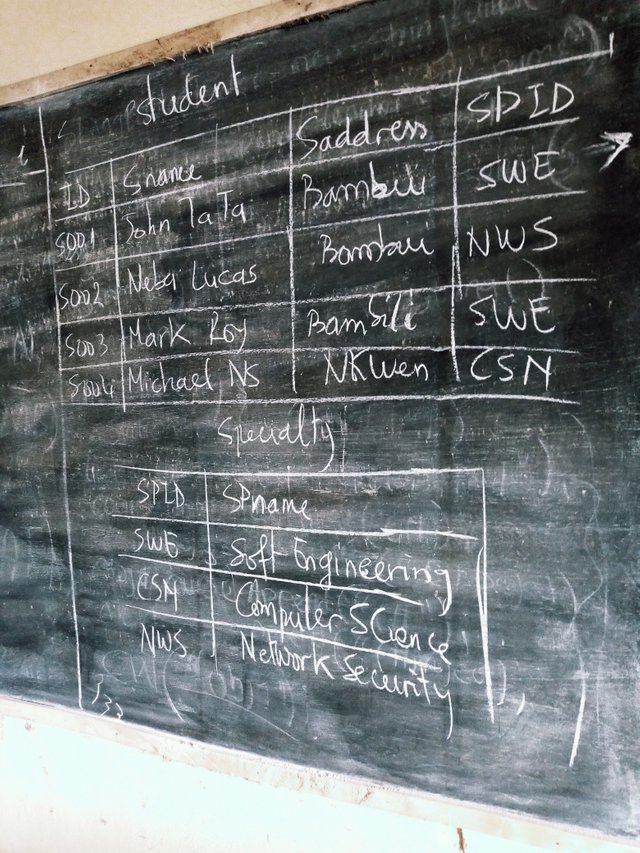 Student
ID Sname Saddress SPID
S001 John TaTa Bambui SWE
S002 Neba Lucas Bambui NWS
S003 Mark Roy Bambili SWE
S004 Michael NS NKwen CSN
Specialty
SPID SPname
SWE Soft Engineering
CSN Computer SCience
NWS Network Security